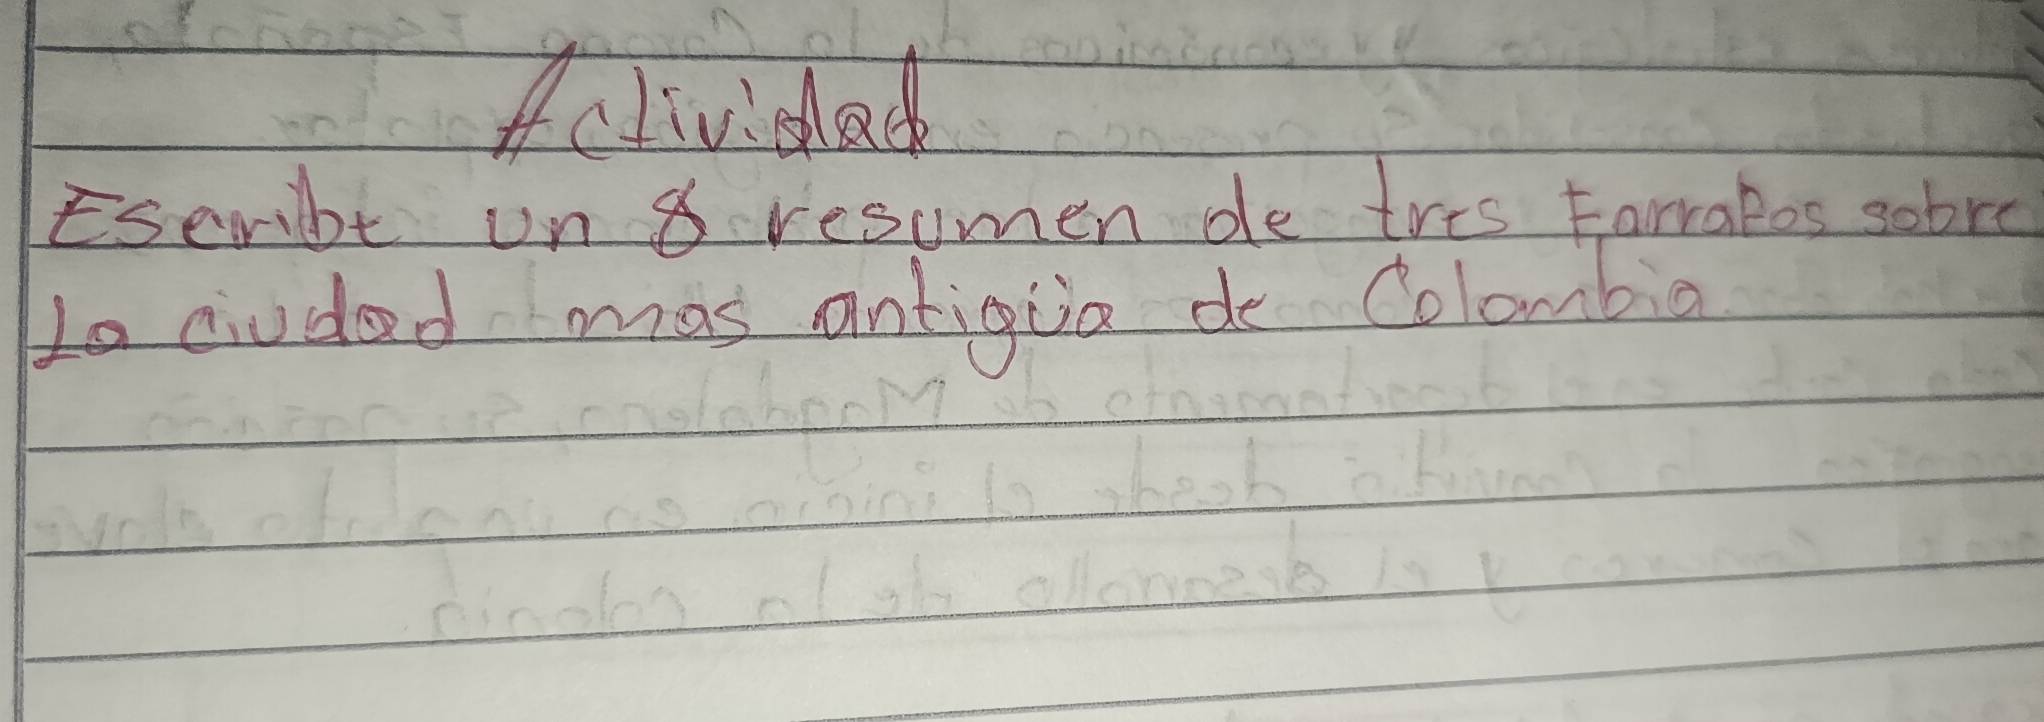 Actividad
Escribe un resumen de tres Parrafos sobre
La ciudad mas antigüa de Colombia